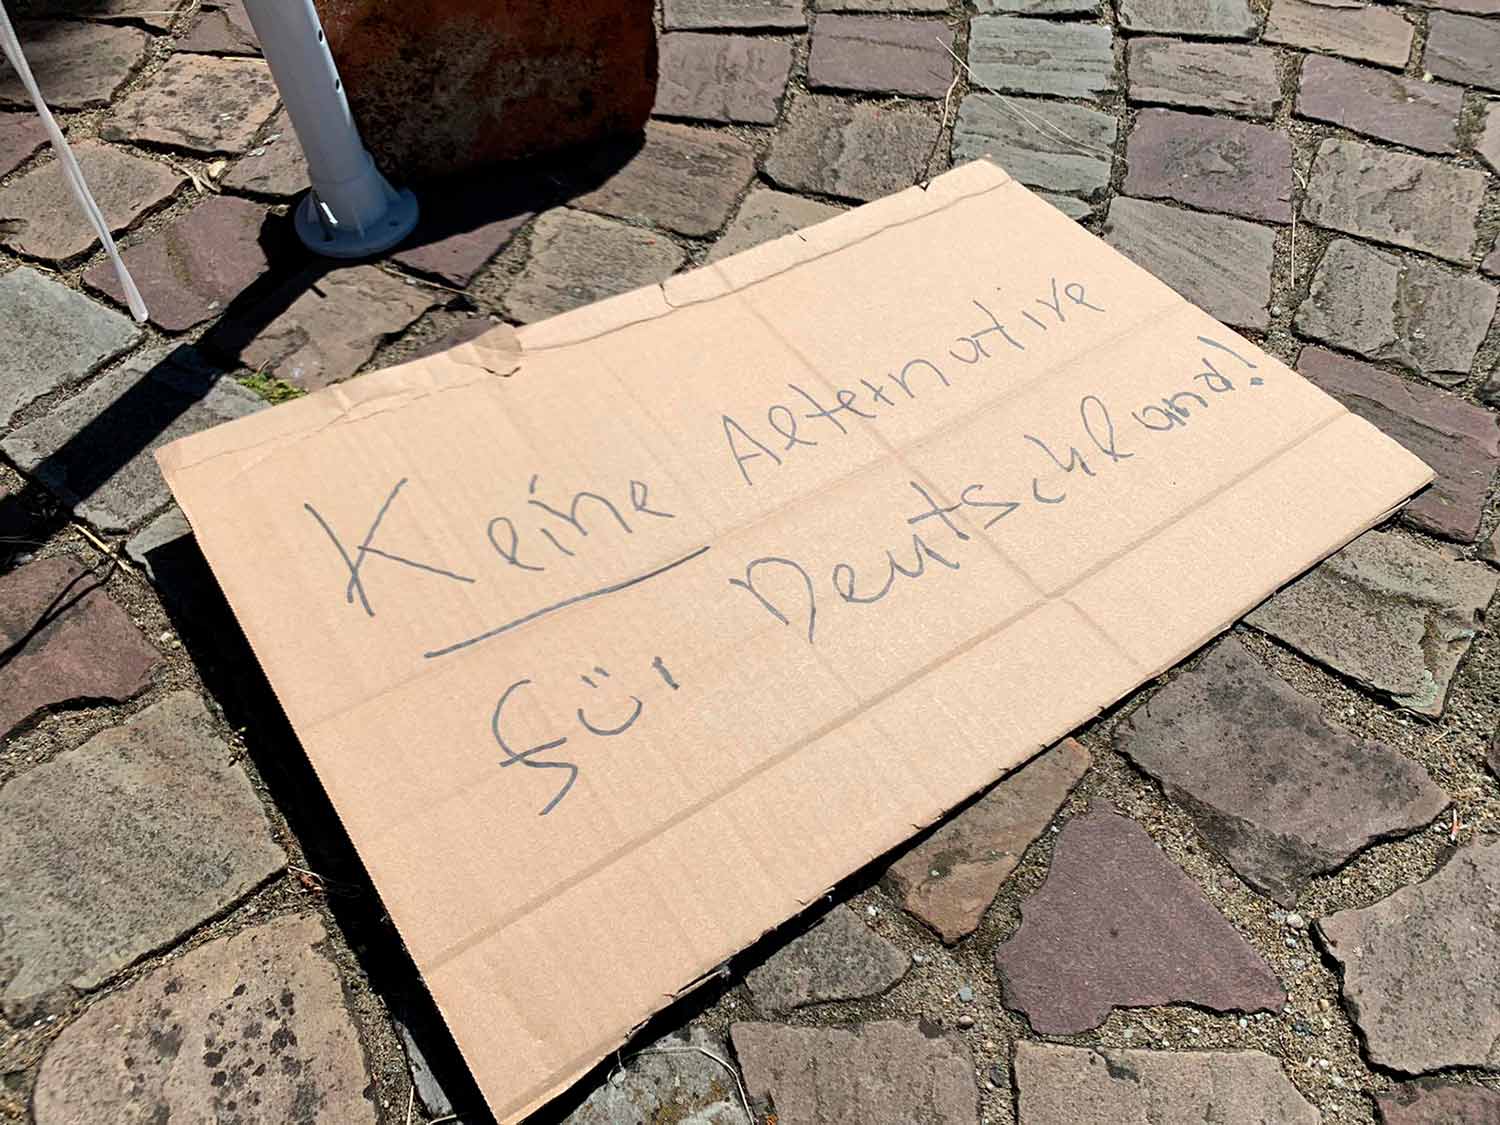 Keine Alternative
für Deutschland!